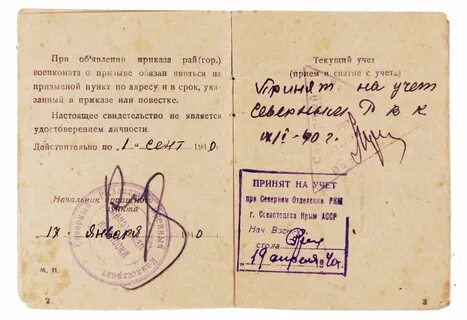 При об'явлении приказа рай(гор.)
военкомата о призыве обязан явиться на
призывной пункт по адресу и в срок, ука-
занный в приказе или повестке.
Настоящее свидетельство не является
удостоверением личности.
Действительно по 1 сент 1940 г.
Начальник призывного
пункта
17 января 1940
М. П.
2
Текущий учет
(прием и снятие с учета)
Принят на учет
Северным Р В К
40 г.
ПРИНЯТ НА УЧЕТ
при Северном Отделении РКМ
г. Севастополя Крым АССР
Нач. Воен
стола
19 апреля 1940 г.
3